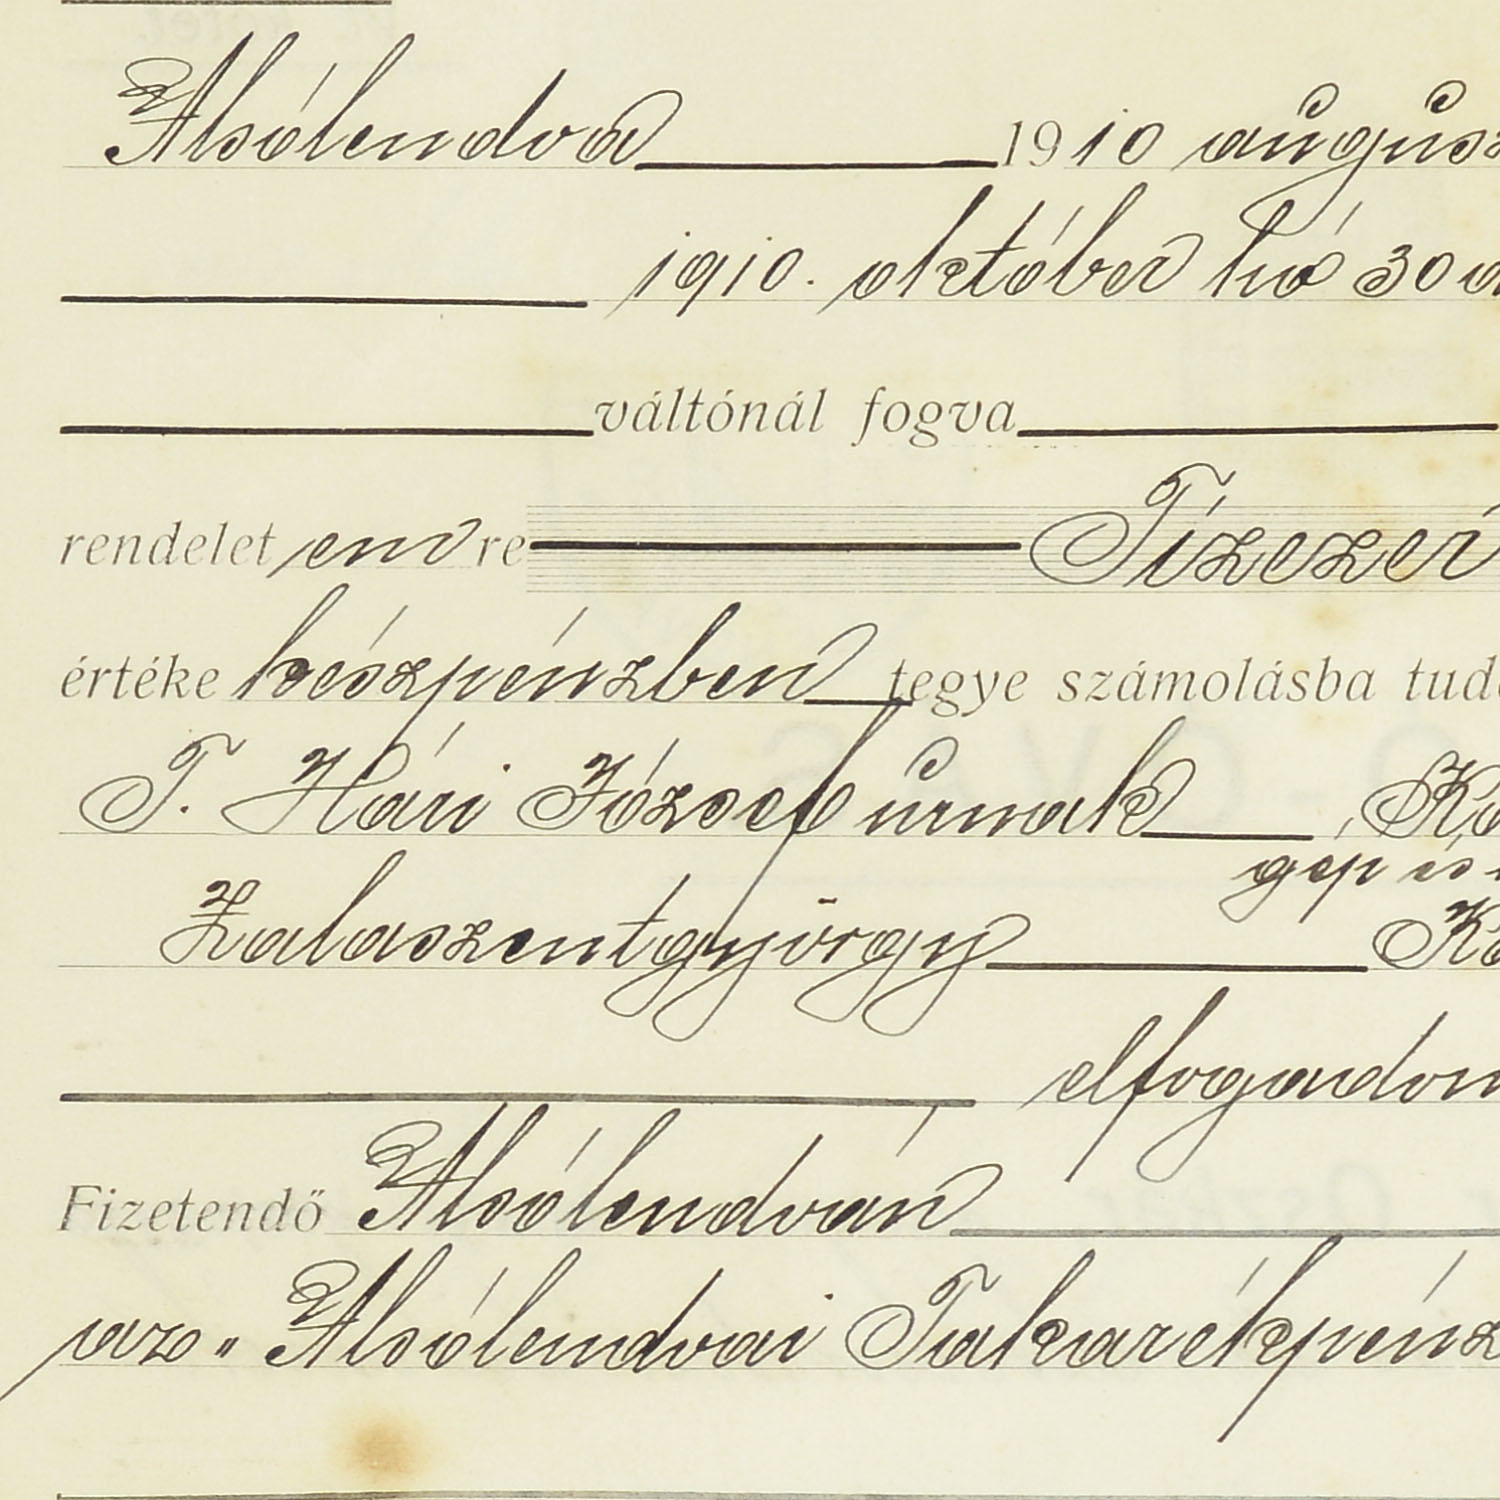 Alsólendva 1910 augusz
1910. október hó 30 a
váltónál fogva
rendelet em re Tizezer
értéke készpénzben tegye számolásba tud
T. Hári József úrnak Ko
gép és
Zalaszentgyörgy
elfogadom
Fizetendő Alsólendván
az „Alsólendvai Takarékpénz